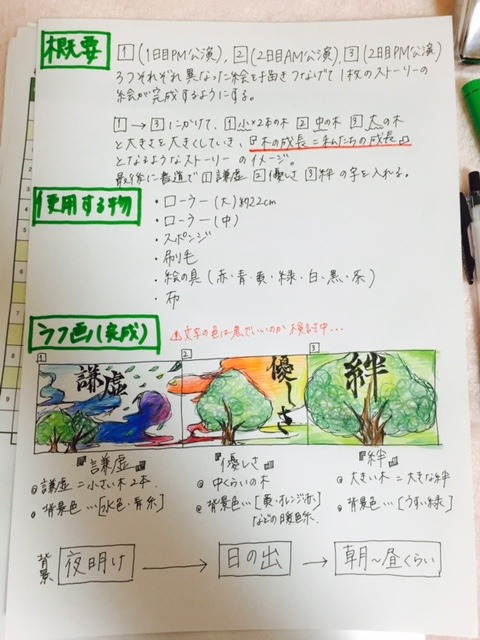 概要
1 (1日目PM公演), 2 (2日目AM公演), 3 (2日目PM公演)
3つそれぞれ異なった絵を描きつなげて1枚のストーリーの
絵が完成するようにする。
1→3にかけて、1小×2本の木 2中の木 3大の木
と大きさを大きくしていき、『木の成長=私たちの成長』
となるようなストーリーのイメージ。
最後に書道で1謙虚 2優しさ 3絆の字を入れる。
使用する物
・ローラー(大)約22cm
・ローラー(中)
・スポンジ
・刷毛
・絵の具(赤・青・黄・緑・白・黒・茶)
・布
ラフ画(完成)
⚠文字の色は黒でいいのか検討中...
1 2 3
謙虚 優しさ 絆
『謙虚』 『優しさ』 『絆』
◎謙虚=小さい木2本. ◎中くらいの木 ◎大きい木=大きな絆
◎背景色…[水色・青系] ◎背景色…[黄・オレンジ・赤] ◎背景色…[うすい緑]
などの暖色系.
背景 夜明け → 日の出 → 朝〜昼くらい